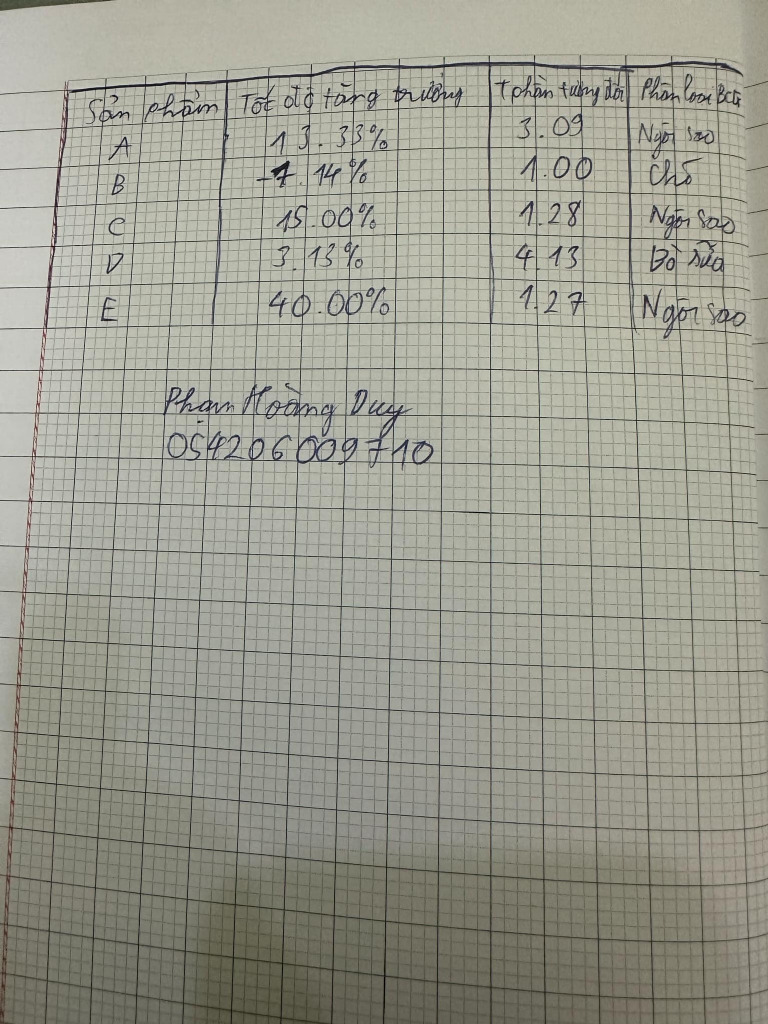 Sản phẩm Tốc độ tăng trưởng T phần tương đối Phân loại BCG
A 13.33% 3.09 Ngôi sao
B -7.14% 1.00 Chó
C 15.00% 1.28 Ngôi sao
D 3.13% 4.13 Bò sữa
E 40.00% 1.27 Ngôi sao
Phan Hoàng Duy
054206009710